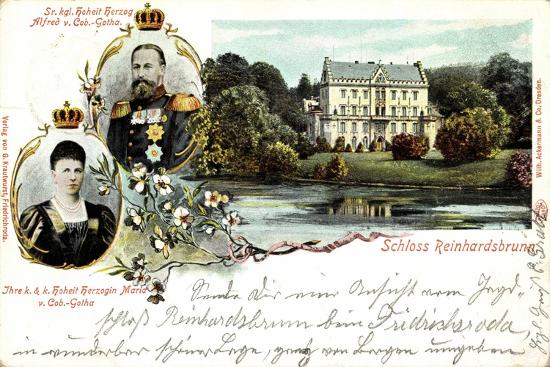 Sr. kgl. Hoheit Herzog
Alfred v. Cob.-Gotha.
Verlag von G. Krautwurst, Friedrichroda.
Wilh. Ackermann & Co. Dresden.
Schloss Reinhardsbrunn
Ihre k. & k. Hoheit Herzogin Maria
v. Cob.-Gotha
Sende Dir eine Ansicht vom Jagd-
schloß Reinhardsbrunn beim Fridrichsroda,
in wunderbar schöner Lage, ganz von Bergen umgeben